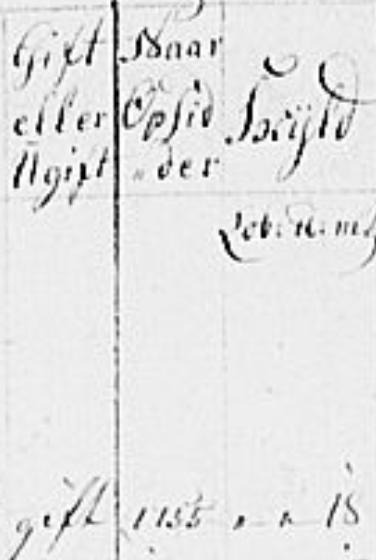 Gift eller Ugift
Naar Opsid„der
Skyld
gift 1755 „ „ 18